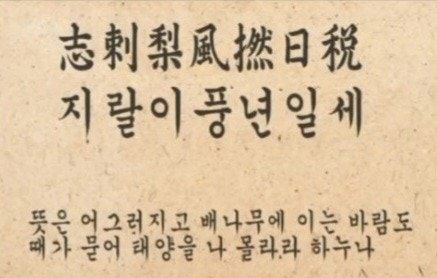 志刺梨風撚日税
지랄이풍년일세
뜻은 어그러지고 배나무에 이는 바람도
때가 묻어 태양을 나 몰라라 하누나